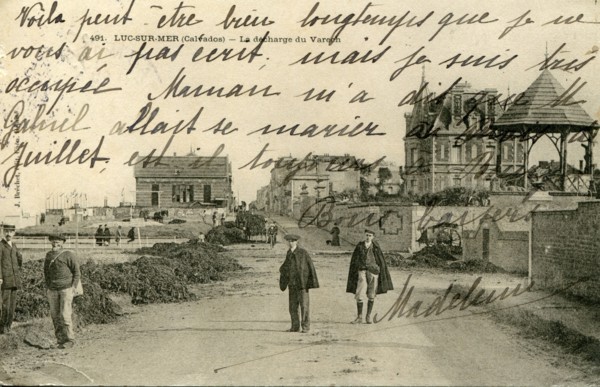 Voila peut-être bien longtemps que je ne
491. LUC-SUR-MER (Calvados) — La décharge du Varech
vous ai pas écrit, mais je suis très
occupée Maman m'a dit que M
Gabriel allait se marier au
juillet, est-il toujours
Bons baisers
Madeleine